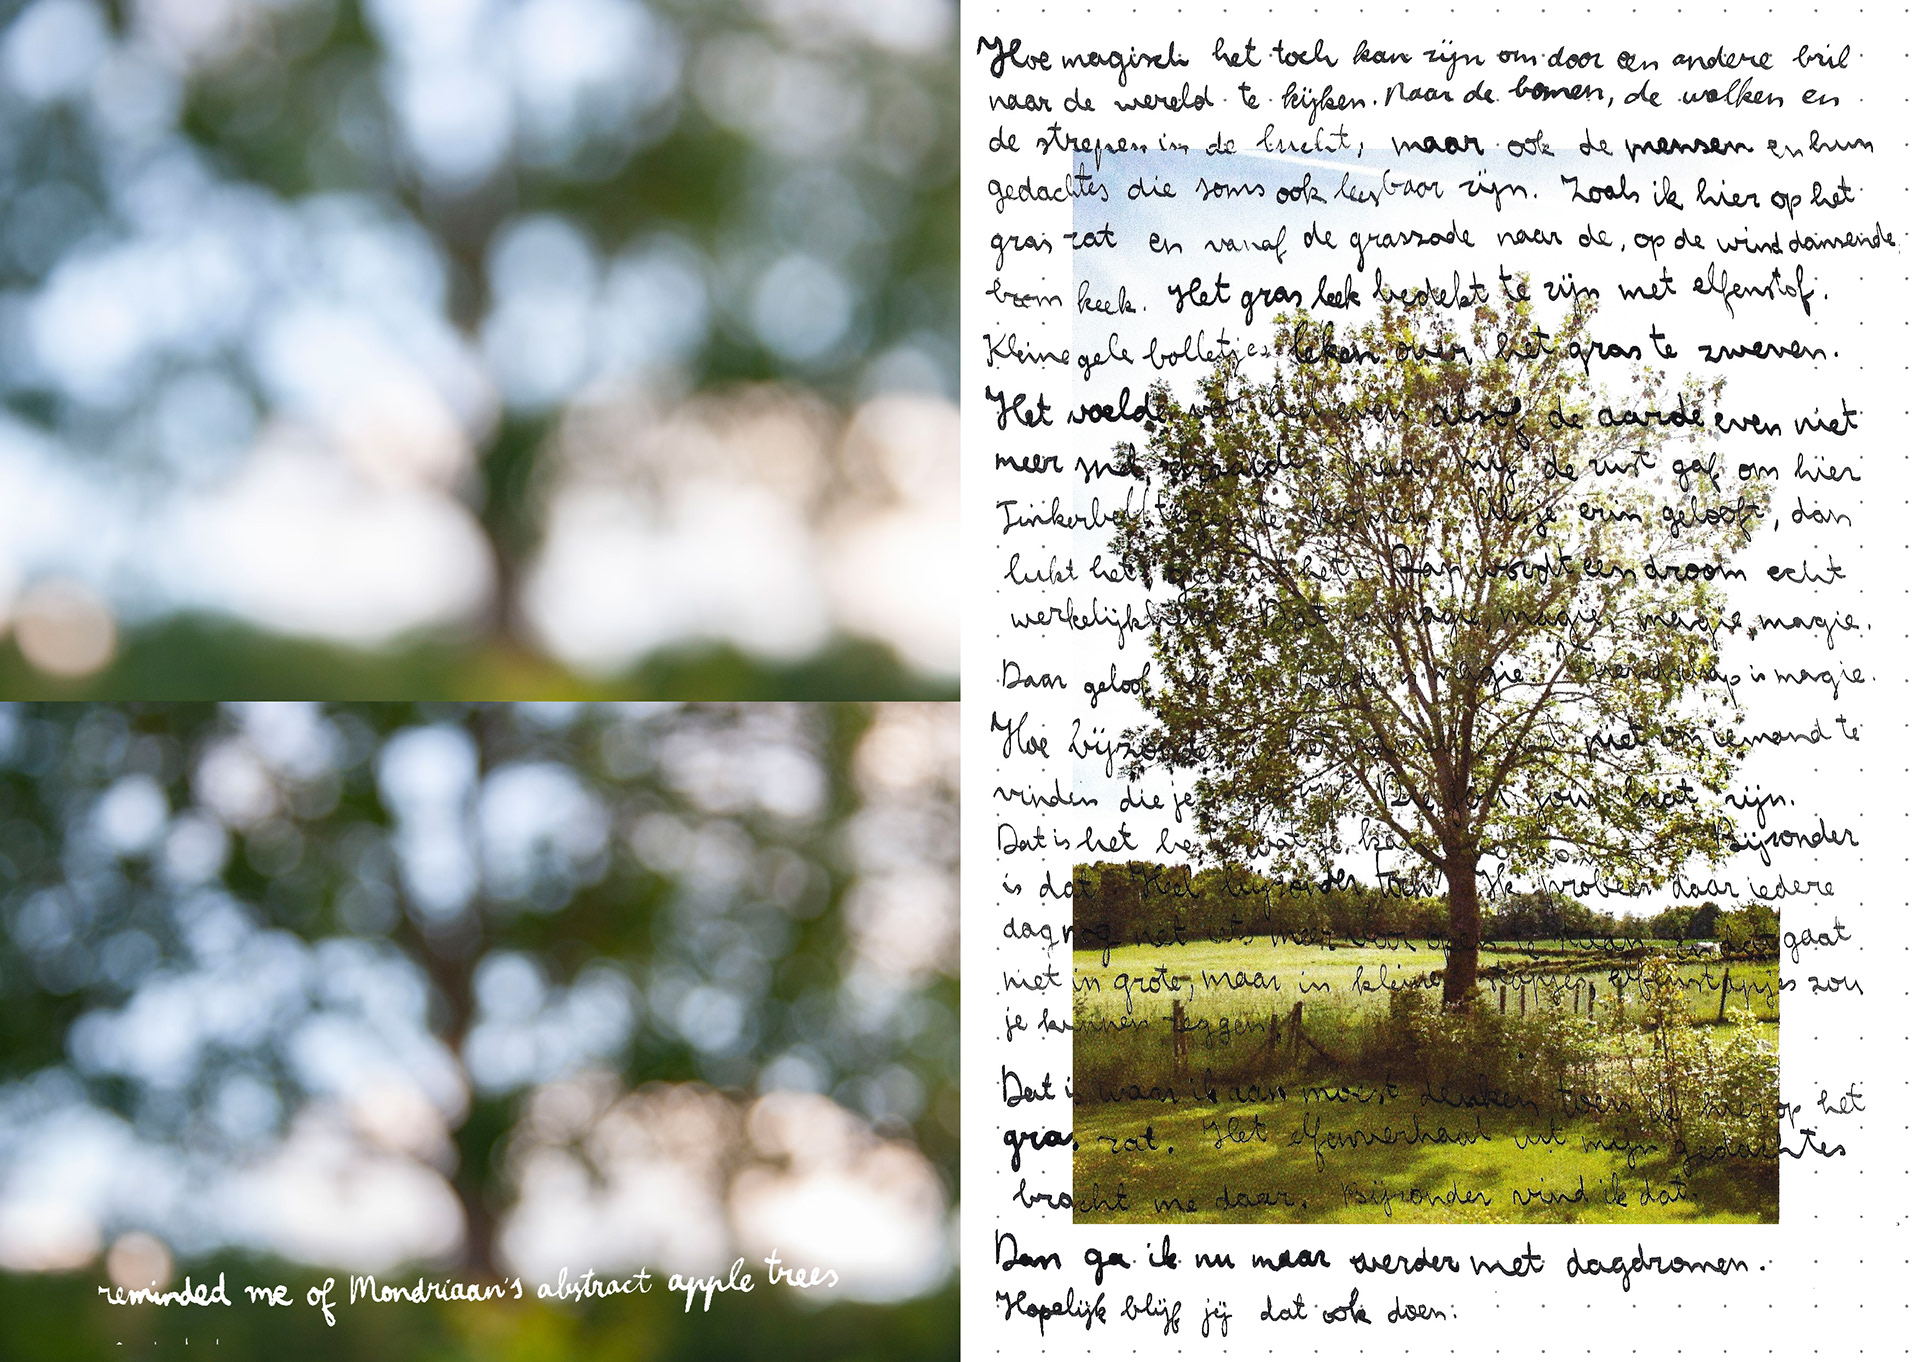 reminded me of Mondriaan's abstract apple trees
Hoe magisch het toch kan zijn om door een andere bril
naar de wereld te kijken. Naar de bomen, de wolken en
de strepen in de lucht, maar ook de mensen en hun
gedachtes die soms ook leesbaar zijn. Zoals ik hier op het
gras zat en vanaf de graszode naar de, op de wind dansende
boom keek. Het gras leek bedekt te zijn met elfenstof.
Kleine gele bolletjes leken over het gras te zweven.
Het voelde alsof de aarde even niet
meer snel draaide, maar mij de rust gaf om hier
Tinkerbell tegen te komen. Als je erin gelooft, dan
lukt het, gebeurt het. Dan wordt een droom echt
werkelijkheid. Dat is magie, magie, magie, magie.
Daar geloof ik in. Liefde is magie. Vriendschap is magie.
Hoe bijzonder is het om iemand te
vinden die je Die jou jou laat zijn.
Dat is het wat je kan Bijzonder
is dat. Heel bijzonder toch? Ik probeer daar iedere
dag nog net iets meer voor open te staan. En dat gaat
niet in grote, maar in kleine stapjes, elfenstapjes zou
je kunnen zeggen.
Dat is waar ik aan moest denken toen ik hier op het
gras zat. Het elfenverhaal uit mijn gedachtes
bracht me daar. Bijzonder vind ik dat.
Dan ga ik nu maar verder met dagdromen.
Hopelijk blijf jij dat ook doen.